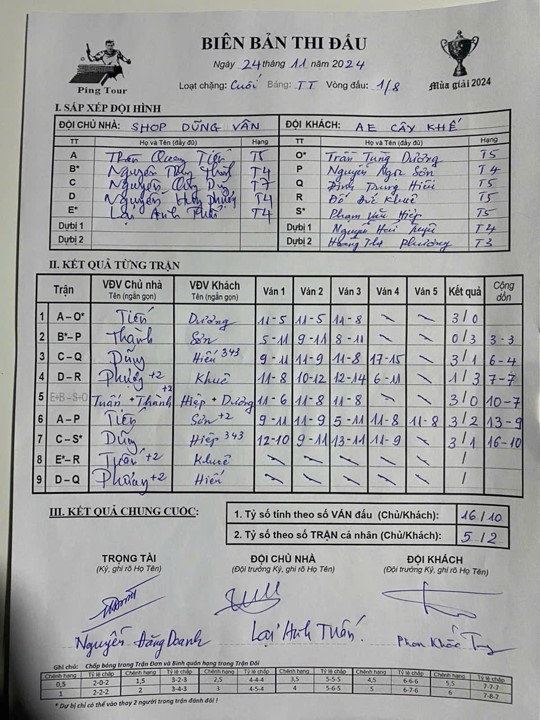 BIÊN BẢN THI ĐẤU
Ngày 24 tháng 11 năm 2024
Ping Tour
Loại chặng: Cuối Bảng: TT Vòng đấu: 1/8
Mùa giải 2024
I. SẮP XẾP ĐỘI HÌNH
ĐỘI CHỦ NHÀ: SHOP DŨNG VÂN ĐỘI KHÁCH: AE CÂY KHẾ
TT Họ và Tên (đầy đủ) Hạng TT Họ và Tên (đầy đủ) Hạng
A Trần Quang Tiến T5 O* Trần Tùng Dương T5
B* Nguyễn Thành T4 P Nguyễn Ngọc Sơn T4
C Nguyễn Dũng T7 Q Đinh Trung Hiếu T5
D Nguyễn T4 R Khuê T5
E* Lại Anh Tuấn T4 S* Phạm Văn Hiệp T5
Dự bị 1 Dự bị 1 Nguyễn T4
Dự bị 2 Dự bị 2 Hoàng Phương T3
II. KẾT QUẢ TỪNG TRẬN
Trận VĐV Chủ nhà Tên (ngắn gọn) VĐV Khách Tên (ngắn gọn) Ván 1 Ván 2 Ván 3 Ván 4 Ván 5 Kết quả Cộng dồn
1 A – O* Tiến Dương 11-5 11-5 11-8 \ \ 3/0
2 B* – P Thành Sơn 5-11 9-11 8-11 \ \ 0/3 3-3
3 C – Q Dũng Hiếu 343 9-11 11-9 11-8 17-15 \ 3/1 6-4
4 D – R +2 Khuê 11-8 10-12 12-14 6-11 \ 1/3 7-7
5 E+B – S+O Tuấn + Thành +2 Hiệp + Dương 11-6 11-8 11-8 \ \ 3/0 10-7
6 A – P Tiến Sơn +2 9-11 11-9 5-11 11-8 11-8 3/2 13-9
7 C – S* Dũng Hiệp 343 12-10 9-11 13-11 11-9 \ 3/1 16-10
8 E* – R Tuấn +2 Khuê \ \ \ \ \ /
9 D – Q +2 Hiếu \ \ \ \ \ /
III. KẾT QUẢ CHUNG CUỘC:
1. Tỷ số tính theo số VÁN đấu (Chủ/Khách): 16/10
2. Tỷ số theo số TRẬN cá nhân (Chủ/Khách): 5/2
TRỌNG TÀI ĐỘI CHỦ NHÀ ĐỘI KHÁCH
(Ký, ghi rõ Họ Tên) (Đội trưởng Ký, ghi rõ Họ Tên) (Đội trưởng Ký, ghi rõ Họ Tên)
Nguyễn Đăng Doanh Lại Anh Tuấn. Phan Khắc
Ghi chú: Chấp bóng trong Trận Đơn và Bình quân hạng trong Trận Đôi
Chênh hạng Tỷ lệ chấp Chênh hạng Tỷ lệ chấp Chênh hạng Tỷ lệ chấp Chênh hạng Tỷ lệ chấp Chênh hạng Tỷ lệ chấp Chênh hạng Tỷ lệ chấp
0,5 2-0-2 1,5 3-2-3 2,5 4-4-4 3,5 5-5-5 4,5 6-6-6 5,5 7-7-7
1 2-2-2 2 3-4-3 3 4-5-4 4 5-6-5 5 6-7-6 6 7-8-7
* Dự bị chỉ có thể vào thay 2 người trong trận đánh đôi !